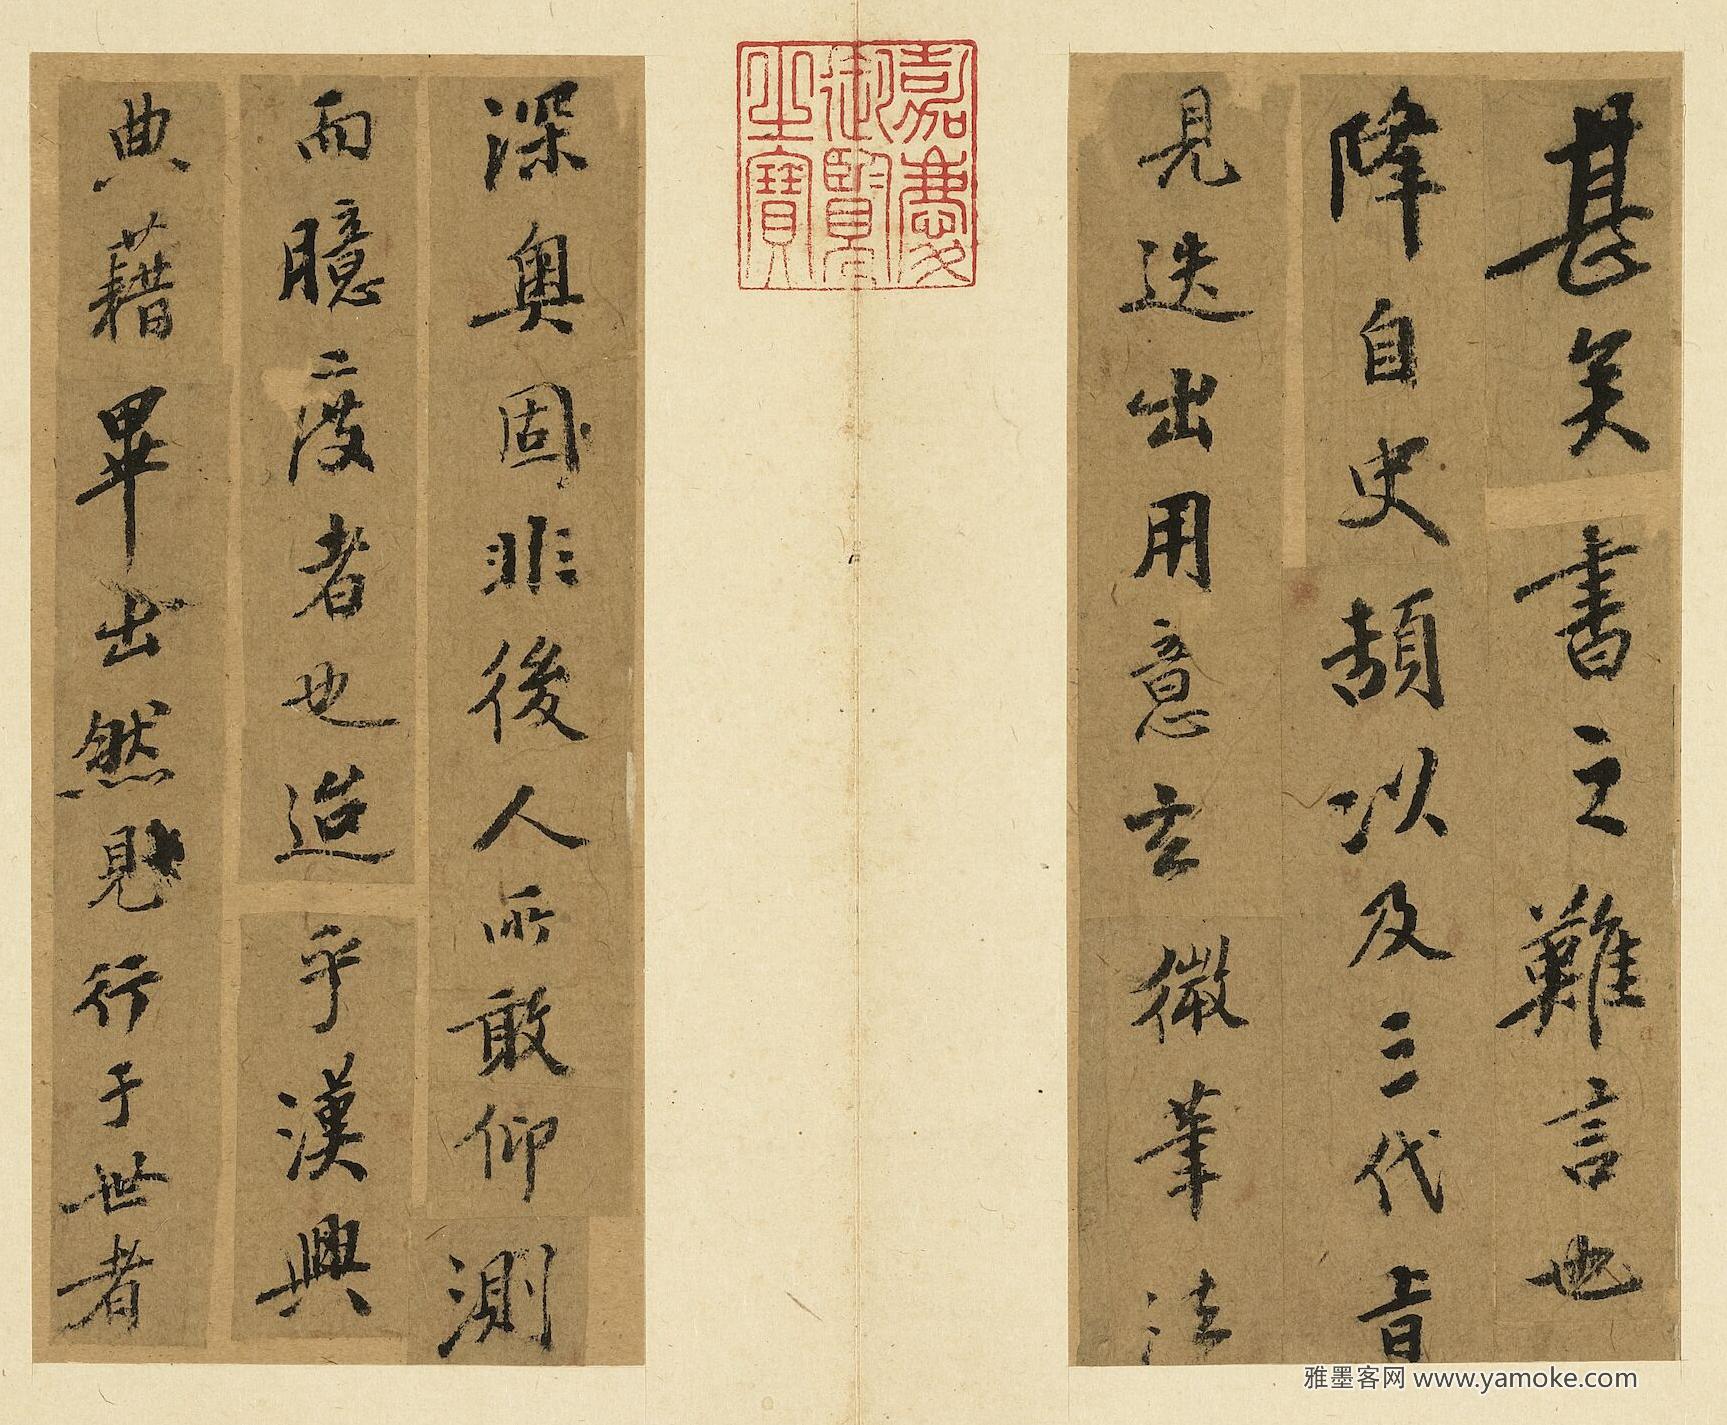 甚矣書之難言也
降自史頡以及三代旨
見迭出用意玄微筆法
嘉慶
御覽
之寶
深奧固非後人所敢仰測
而臆度者也迨乎漢興
典藉畢出然見行于世者
雅墨客网 www.yamoke.com